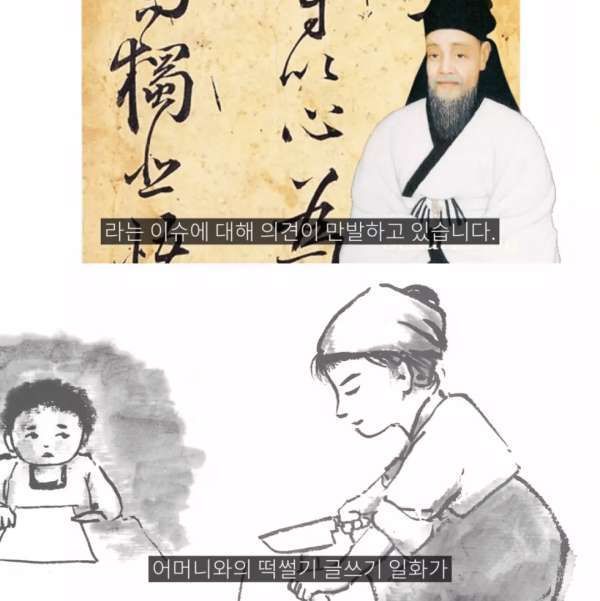 以心為
獨
라는 이슈에 대해 의견이 만발하고 있습니다.
어머니와의 떡썰기 글쓰기 일화가